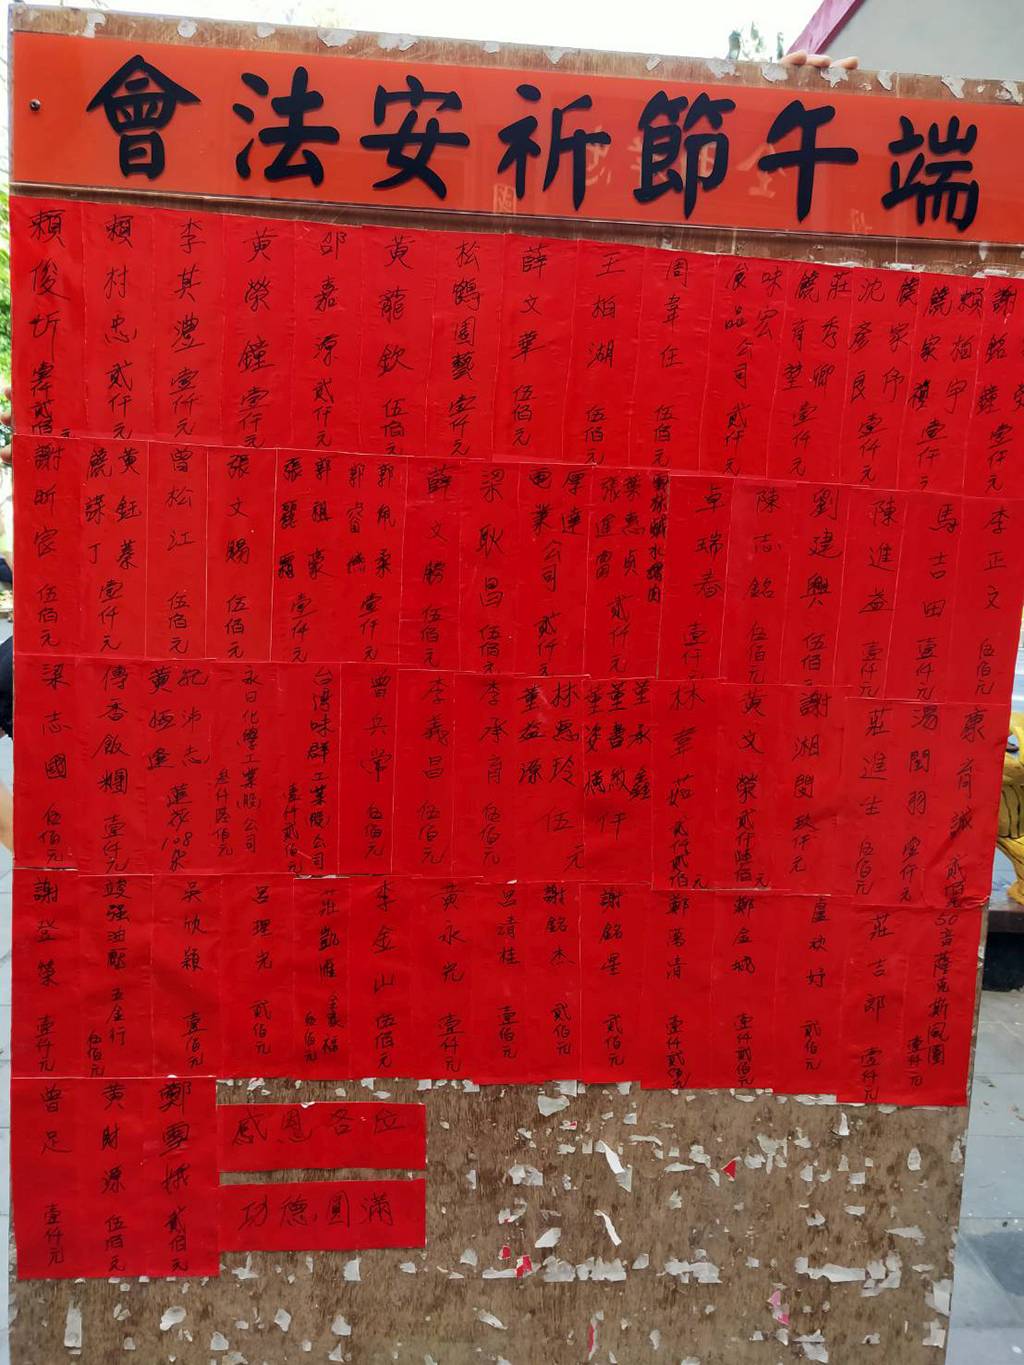 端午節祈安法會
謝銘鐘
賴柏宇
饒家禮
壹仟元
饒家伟
沈彥良
壹仟元
莊秀卿
壹仟元
味宏
食品公司
貳仟元
周韋任
伍佰元
王柏湖
伍佰元
薛文華
伍佰元
松鶴園藝
壹仟元
黃龍欽
伍佰元
邵嘉源
貳仟元
黃榮鐘
壹仟元
李其澧
壹仟元
賴村忠
貳仟元
賴俊圻
李正文
伍佰元
馬吉田
壹仟元
陳進益
壹仟元
劉建興
伍佰元
陳志銘
伍佰元
卓瑞春
壹仟元
葉惠貞
張進富
貳仟元
厚達
電業公司
貳仟元
梁耿昌
伍佰元
薛文勝
伍佰元
郭佩柔
壹仟元
郭祖豪
張麗霜
壹仟元
張文賜
伍佰元
曾松江
伍佰元
黃鈺蓁
饒謀丁
壹仟元
謝昕宸
伍佰元
康育誠
貳佰元
湯閔羽
壹仟元
莊進生
伍佰元
謝湘閔
玖仟元
黃文榮
貳仟陸佰元
林韋茹
貳仟貳佰元
董承鑫
董書敏
林惠玲
董益源
伍仟元
李承育
伍佰元
李義昌
伍佰元
曾兵常
伍佰元
台灣味群工業(股)公司
壹仟貳佰元
永日化學工業(股)公司
叁仟陸佰元
紀沛志
黃恆逢
蓮花108朵
傳香飯糰
壹仟元
梁志國
伍佰元
50音薩克斯風團
壹仟元
莊吉郎
壹仟元
盧欣妤
貳佰元
鄭金城
壹仟貳佰元
鄭萬清
壹仟貳佰元
謝銘星
貳佰元
謝銘杰
貳佰元
呂清桂
壹佰元
黃永光
壹仟元
李金山
伍佰元
莊凱雁
全家福
伍佰元
呂理光
貳佰元
吳欣穎
壹佰元
竣强油壓五金行
伍佰元
謝登榮
壹仟元
鄭雪娥
貳佰元
黃財源
伍佰元
曾足
壹仟元
感恩各位
功德圓滿